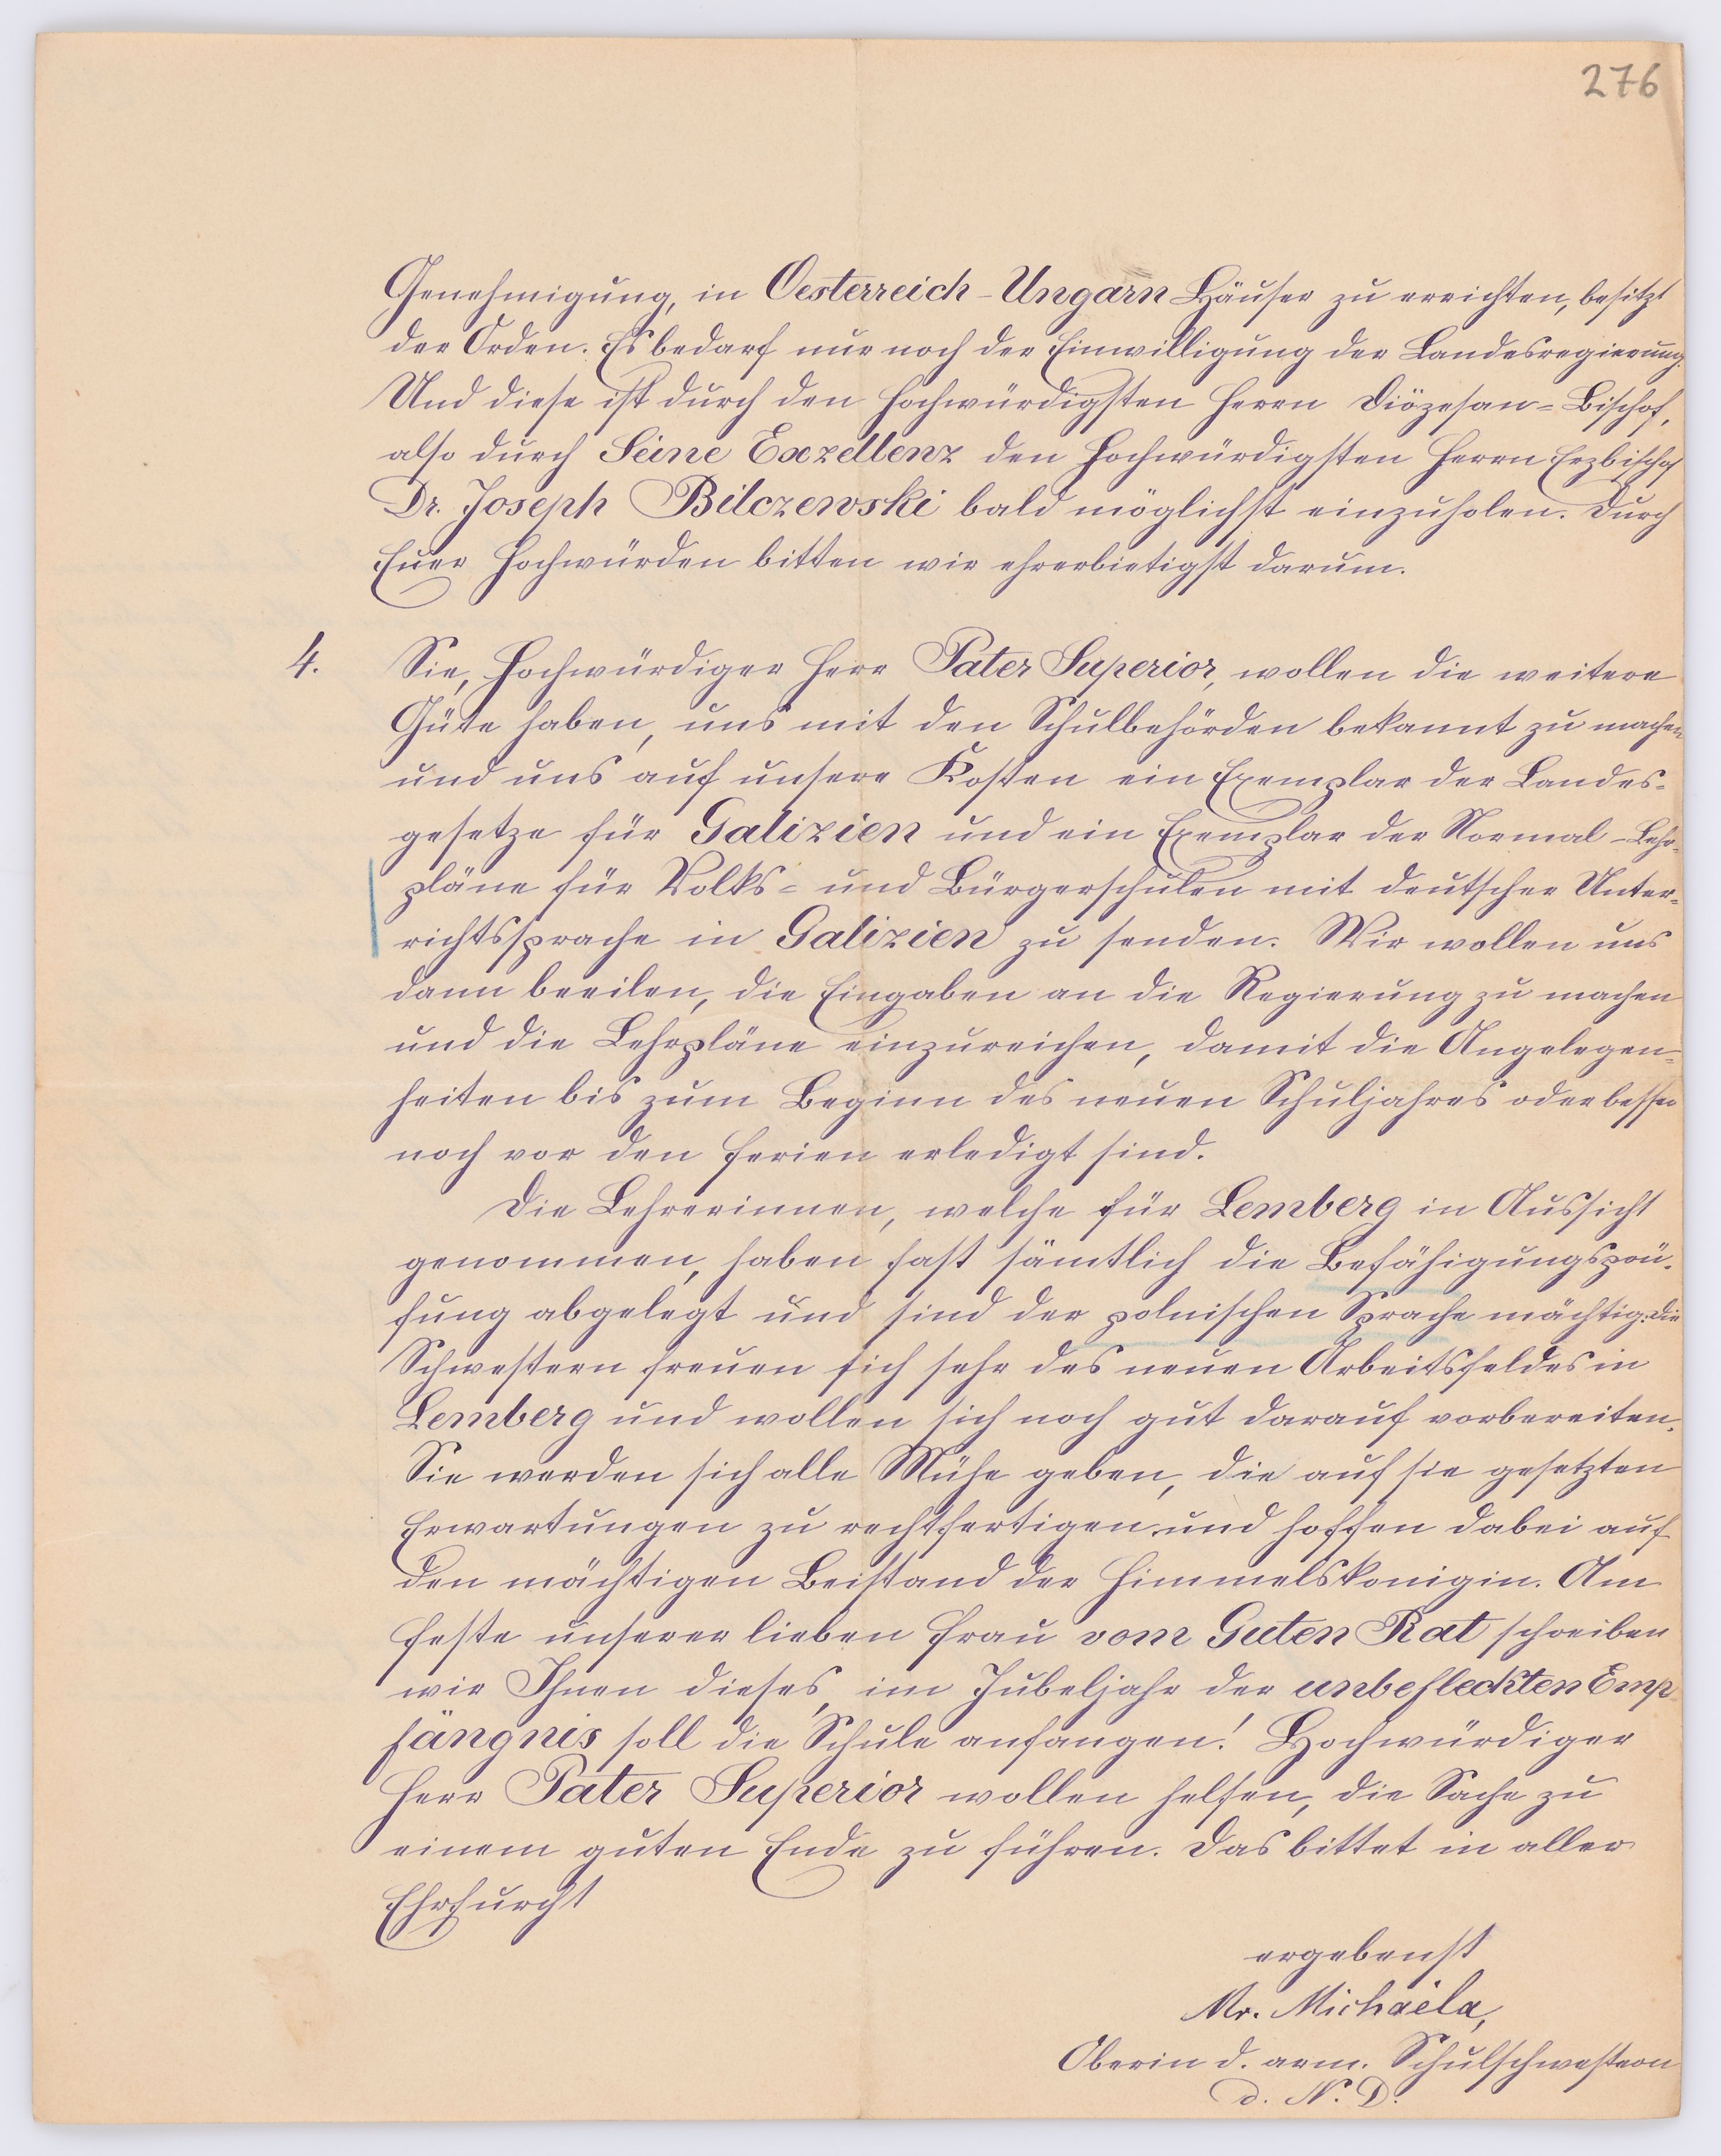 276
Genehmigung, in Oesterreich-Ungarn Häuser zu errichten, besitzt
der Orden. Es bedarf nur noch der Einwilligung der Landesregierung.
Und diese ist durch den Hochwürdigsten Herrn Diözesan-Bischof,
also durch Seine Exzellenz den Hochwürdigsten Herrn Erzbischof
Dr. Joseph Bilczewski bald möglichst einzuholen. Durch
Euer Hochwürden bitten wir ehrerbietigst darum.
4. Sie, Hochwürdiger Herr Pater Superior, wollen die weitere
Güte haben, uns mit den Schulbehörden bekannt zu machen
und uns auf unsere Kosten ein Exemplar der Landes-
gesetze für Galizien und ein Exemplar der Normal-Lehr-
pläne für Volks- und Bürgerschulen mit deutscher Unter-
richtssprache in Galizien zu senden. Wir wollen uns
dann beeilen, die Eingaben an die Regierung zu machen
und die Lehrpläne einzureichen, damit die Angelegen-
heiten bis zum Beginn des neuen Schuljahres oder besser
noch vor den Ferien erledigt sind.
Die Lehrerinnen, welche für Lemberg in Aussicht
genommen, haben fast sämtlich die Befähigungsprü-
fung abgelegt und sind der polnischen Sprache mächtig. Die
Schwestern freuen sich sehr des neuen Arbeitsfeldes in
Lemberg und wollen sich noch gut darauf vorbereiten.
Sie werden sich alle Mühe geben, die auf sie gesetzten
Erwartungen zu rechtfertigen und hoffen dabei auf
den mächtigen Beistand der Himmelskonigin. Am
Feste unserer lieben Frau vom Guten Rat schreiben
wir Ihnen dieses, im Jubeljahr der unbefleckten Emp-
fängnis soll die Schule anfangen! Hochwürdiger
Herr Pater Superior wollen helfen, die Sache zu
einem guten Ende zu führen. Das bittet in aller
Ehrfurcht
ergebenst
Mr. Michaëla,
Oberin d. arm. Schulschwestern
d. N. D.